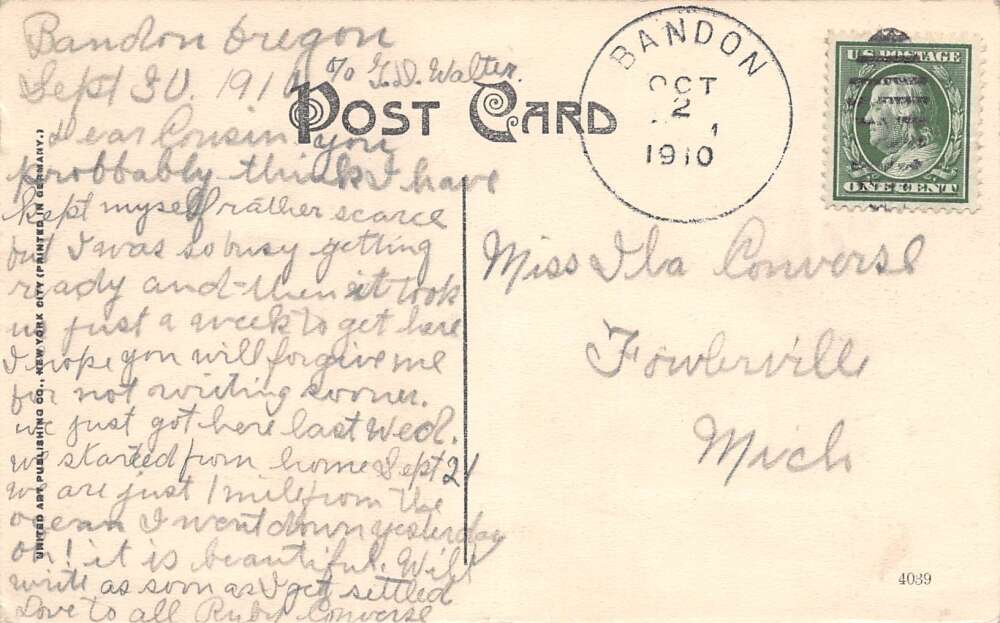 Bandon Oregon
Sept 30, 1910 c/o G.D. Walter.
POST CARD
BANDON
OCT
2
1910
U.S. POSTAGE
ONE CENT
Dear Cousin you
probbably think I have
kept myself rather scarce
but I was so busy getting
ready and then it took
us just a week to get here
I hope you will forgive me
for not writing sooner.
we just got here last Wed.
we started from home Sept 21
we are just 1 mile from the
ocean I went down yesterday
oh! it is beautiful. Will
write as soon as I get settled
Love to all Ruby Converse
Miss Ila Converse
Fowlerville
Mich
UNITED ART PUBLISHING CO., NEW YORK CITY (PRINTED IN GERMANY.)
4039